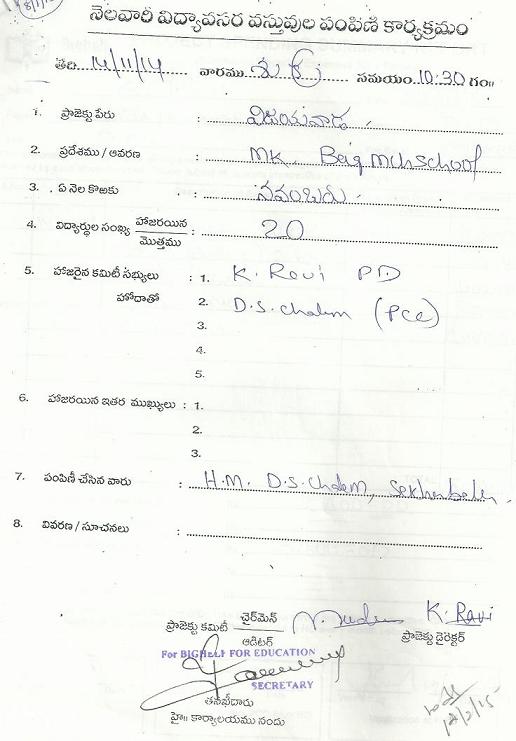 నెలవారీ విద్యావసర వస్తువుల పంపిణి కార్యక్రమం
తేది 14/11/14 వారము శుక్ర సమయం 10:30 గం॥
1. ప్రాజెక్టు పేరు : విజయవాడ.
2. ప్రదేశము / ఆవరణ : MK. Baig Mch school
3. . ఏ నెల కొఱకు : నవంబరు.
4. విద్యార్థుల సంఖ్య హాజరయిన / మొత్తము : 20
5. హాజరైన కమిటీ సభ్యులు : 1. K. Ravi PD
హోదాతో 2. D.S. chalem (PCC)
3.
4.
5.
6. హాజరయిన ఇతర ముఖ్యులు : 1.
2.
3.
7. పంపిణీ చేసిన వారు : H.M. D.S. Chalem,
8. వివరణ / సూచనలు :
ప్రాజెక్టు కమిటీ ఛైర్‌మెన్ / ఆడిటర్ K. Ravi
ప్రాజెక్టు డైరెక్టర్
For BIGHELP FOR EDUCATION
SECRETARY
తనిఖీదారు
హై॥ కార్యాలయము నందు
12/2/15